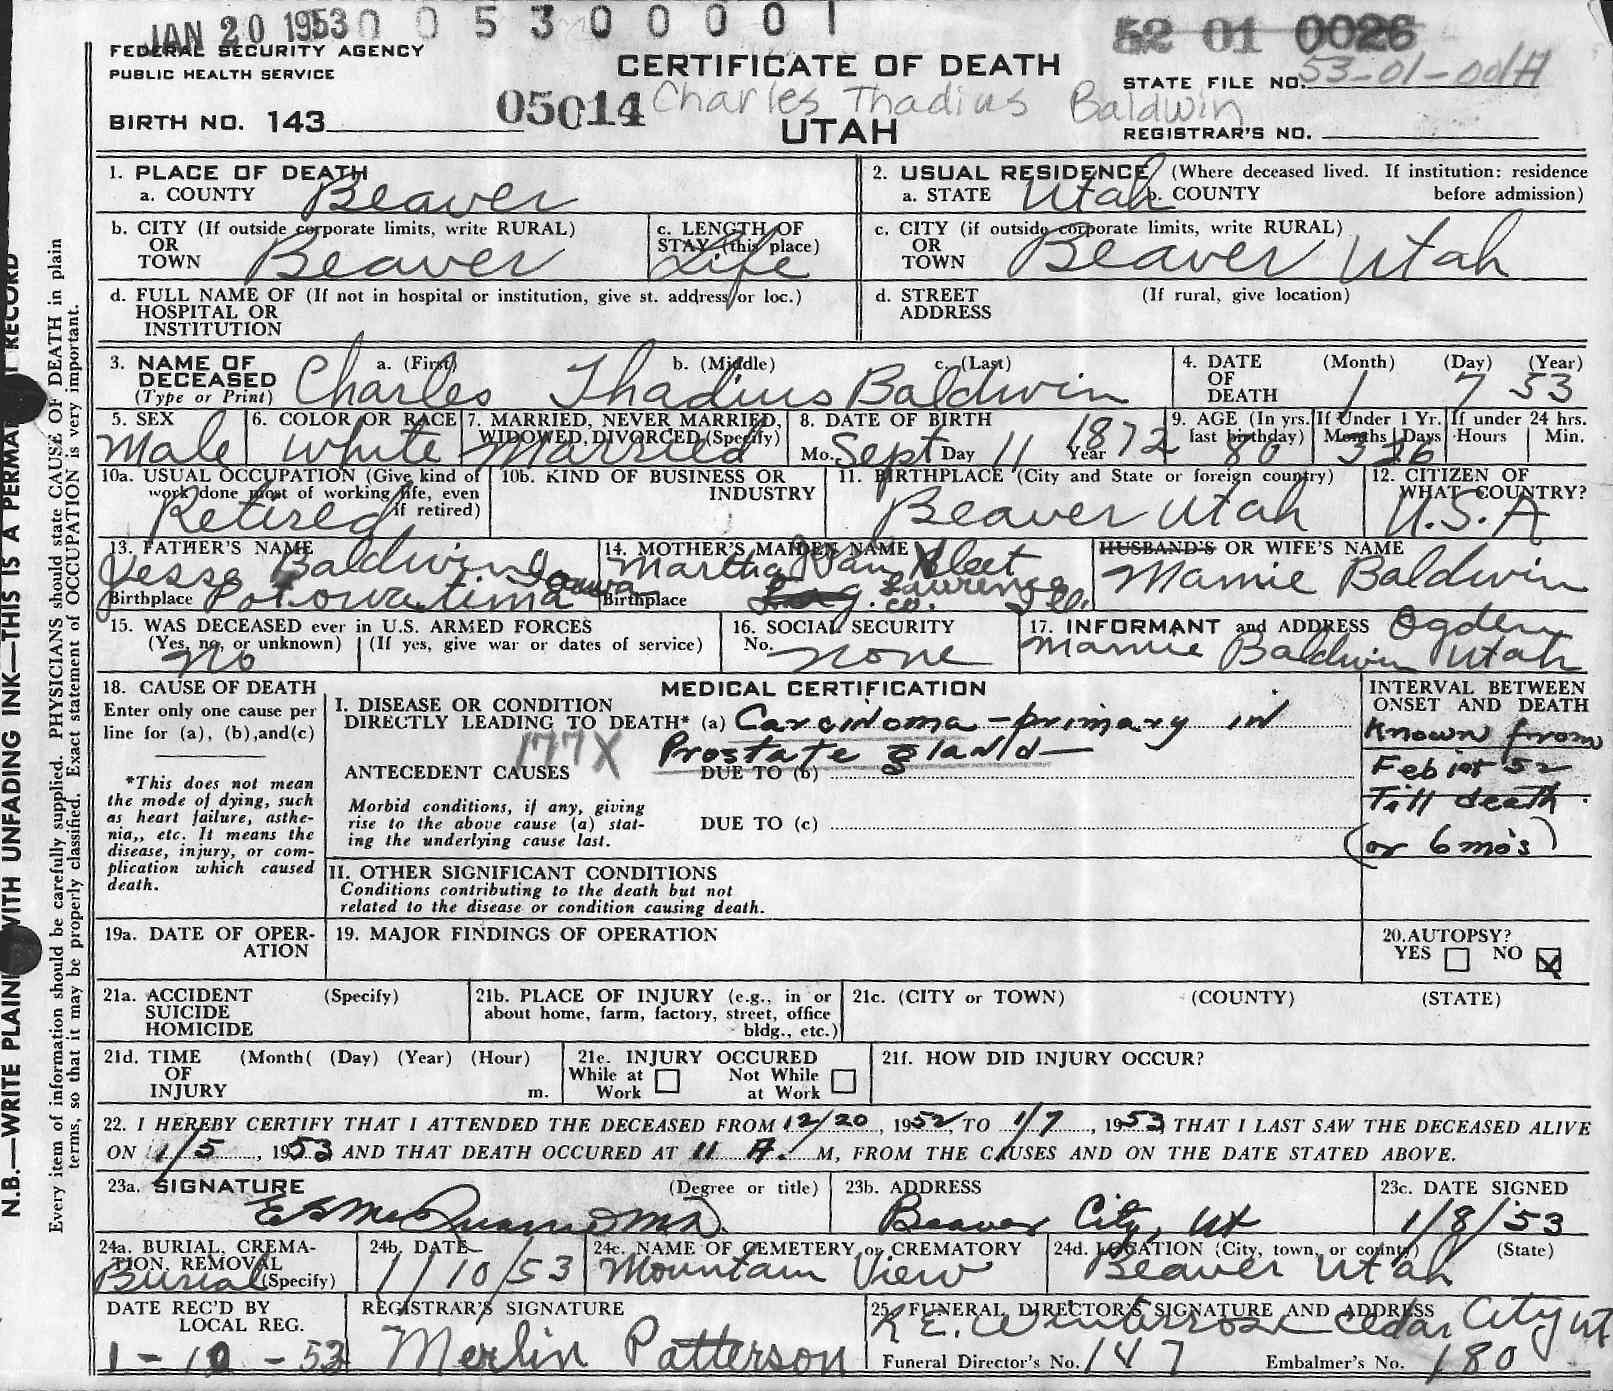 JAN 20 1953 0 0 5 3 0 0 0 0 1
52 01 0026
FEDERAL SECURITY AGENCY
PUBLIC HEALTH SERVICE
CERTIFICATE OF DEATH
STATE FILE NO. 53-01-
BIRTH NO. 143
05014 Charles Thadius Baldwin
UTAH
REGISTRAR'S NO.
1. PLACE OF DEATH
a. COUNTY Beaver
2. USUAL RESIDENCE (Where deceased lived. If institution: residence before admission)
a. STATE Utah b. COUNTY
b. CITY (If outside corporate limits, write RURAL)
OR
TOWN Beaver
c. LENGTH OF
STAY (this place)
Life
c. CITY (if outside corporate limits, write RURAL)
OR
TOWN Beaver Utah
d. FULL NAME OF (If not in hospital or institution, give st. address or loc.)
HOSPITAL OR
INSTITUTION
d. STREET (If rural, give location)
ADDRESS
3. NAME OF a. (First) b. (Middle) c. (Last)
DECEASED Charles Thadius Baldwin
(Type or Print)
4. DATE (Month) (Day) (Year)
OF
DEATH 1 7 53
5. SEX
Male
6. COLOR OR RACE
White
7. MARRIED, NEVER MARRIED,
WIDOWED, DIVORCED (Specify)
Married
8. DATE OF BIRTH
Mo. Sept Day 11 Year 1872
9. AGE (In yrs.
last birthday)
80
If Under 1 Yr.
Months Days
3 26
If under 24 hrs.
Hours Min.
10a. USUAL OCCUPATION (Give kind of
work done most of working life, even
if retired)
Retired
10b. KIND OF BUSINESS OR
INDUSTRY
11. BIRTHPLACE (City and State or foreign country)
Beaver Utah
12. CITIZEN OF
WHAT COUNTRY?
U.S.A
13. FATHER'S NAME
Jesse Baldwin
Birthplace Potowatima Iowa
14. MOTHER'S MAIDEN NAME
Martha Van Fleet
Birthplace Lawrence
co. Ill.
HUSBAND'S OR WIFE'S NAME
Mamie Baldwin
15. WAS DECEASED ever in U.S. ARMED FORCES
(Yes, no, or unknown) (If yes, give war or dates of service)
no
16. SOCIAL SECURITY
No. none
17. INFORMANT and ADDRESS Ogden
Mamie Baldwin Utah
18. CAUSE OF DEATH
Enter only one cause per
line for (a), (b),and(c)
*This does not mean
the mode of dying, such
as heart failure, asthe-
nia,, etc. It means the
disease, injury, or com-
plication which caused
death.
MEDICAL CERTIFICATION
I. DISEASE OR CONDITION
DIRECTLY LEADING TO DEATH* (a) Carcinoma - primary in
177X Prostate gland -
ANTECEDENT CAUSES DUE TO (b)
Morbid conditions, if any, giving
rise to the above cause (a) stat-
ing the underlying cause last.
DUE TO (c)
II. OTHER SIGNIFICANT CONDITIONS
Conditions contributing to the death but not
related to the disease or condition causing death.
INTERVAL BETWEEN
ONSET AND DEATH
Known from
Feb 1st 52
Till death.
(or 6 mo's)
19a. DATE OF OPER-
ATION
19. MAJOR FINDINGS OF OPERATION
20. AUTOPSY?
YES NO X
21a. ACCIDENT (Specify)
SUICIDE
HOMICIDE
21b. PLACE OF INJURY (e.g., in or
about home, farm, factory, street, office
bldg., etc.)
21c. (CITY or TOWN) (COUNTY) (STATE)
21d. TIME (Month( (Day) (Year) (Hour)
OF
INJURY m.
21e. INJURY OCCURED
While at Work Not While at Work
21f. HOW DID INJURY OCCUR?
22. I HEREBY CERTIFY THAT I ATTENDED THE DECEASED FROM 12/20, 1952, TO 1/7, 1953, THAT I LAST SAW THE DECEASED ALIVE
ON 1/5, 1953 AND THAT DEATH OCCURED AT 11 A. M, FROM THE CAUSES AND ON THE DATE STATED ABOVE.
23a. SIGNATURE (Degree or title)
23b. ADDRESS
Beaver City, Ut
23c. DATE SIGNED
1/8/53
24a. BURIAL, CREMA-
TION, REMOVAL
Burial (Specify)
24b. DATE
1/10/53
24c. NAME OF CEMETERY or CREMATORY
Mountain View
24d. LOCATION (City, town, or county) (State)
Beaver Utah
DATE REC'D BY
LOCAL REG.
1-10-53
REGISTRAR'S SIGNATURE
Merlin Patterson
25. FUNERAL DIRECTOR'S SIGNATURE AND ADDRESS
Cedar City Ut
Funeral Director's No. 147 Embalmer's No. 180
N.B.—WRITE PLAINLY WITH UNFADING INK—THIS IS A PERMANENT RECORD
Every item of information should be carefully supplied. PHYSICIANS should state CAUSE OF DEATH in plain
terms, so that it may be properly classified. Exact statement of OCCUPATION is very important.